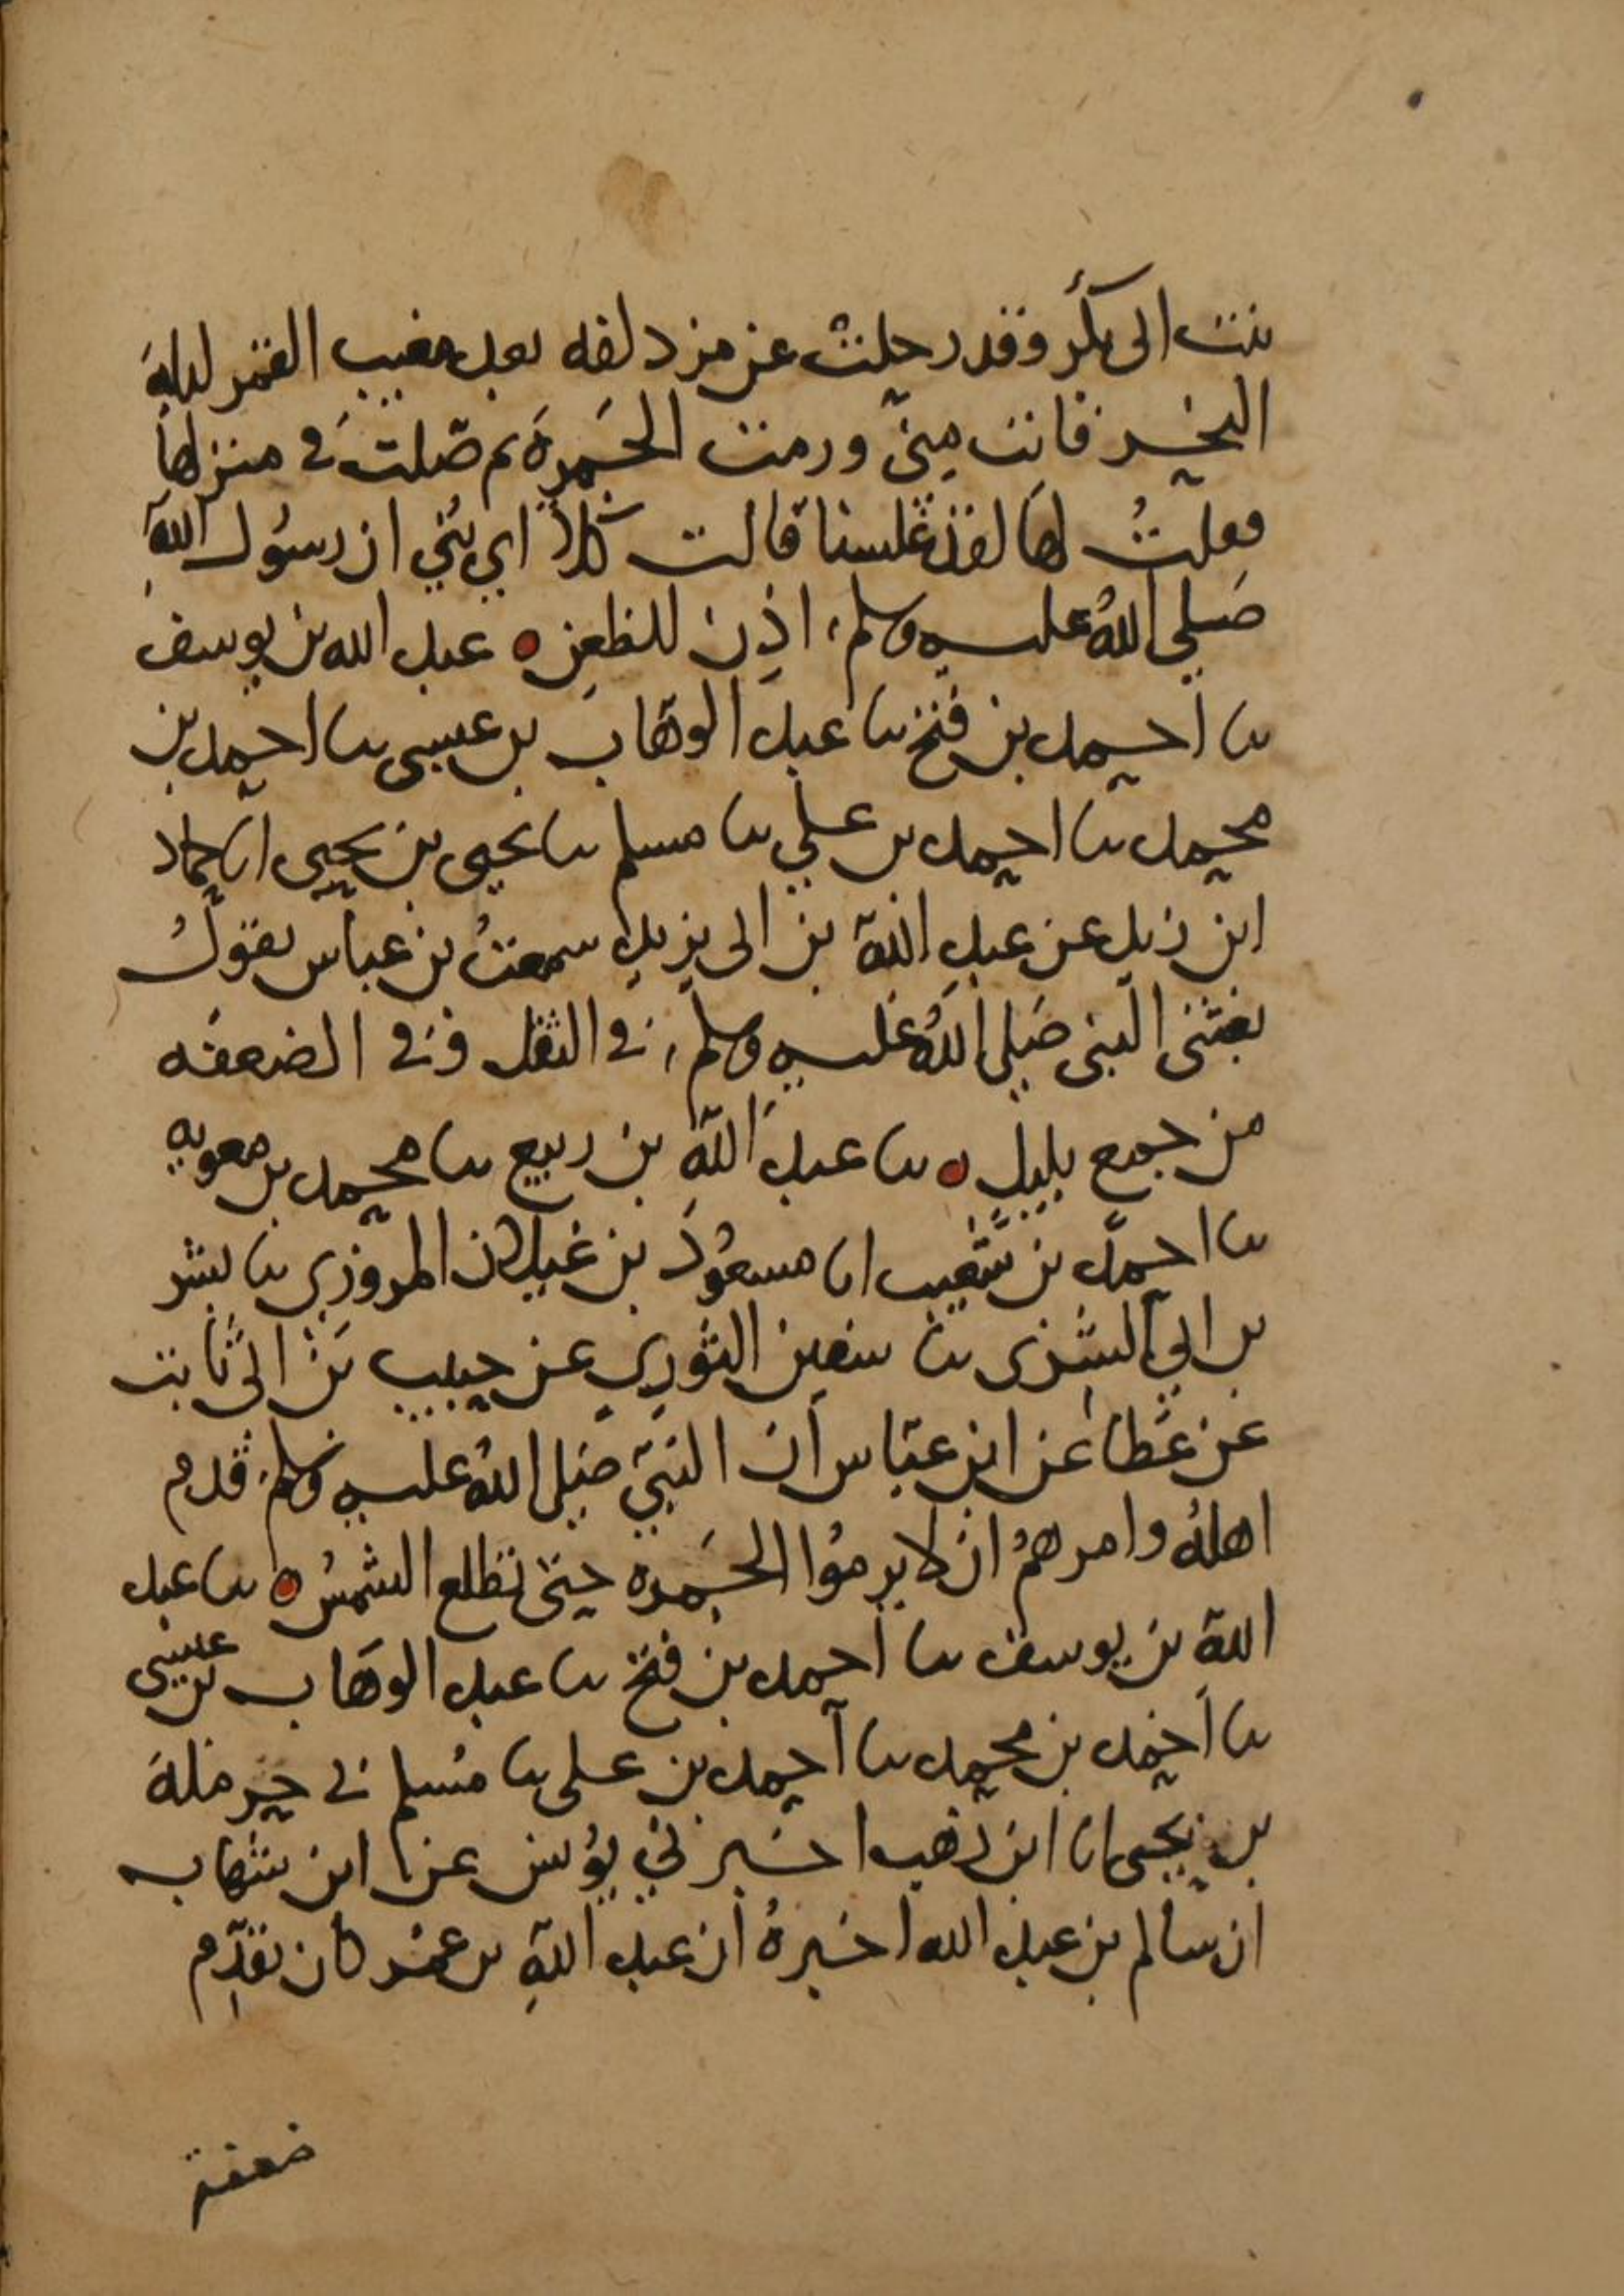 بنت ابى بكر وقد رحلت عن مزدلفه بعد مغيب القمر ليلة
النحر فاتت منى ورمت الجمرة ثم صلت في منزلها
فقلتُ لها لقد غلسنا قالت كلا اي بني ان رسول الله
صلى الله عليه وسلم اذن للظعن ه عبد الله بن يوسف
نا احمد بن فتح نا عبد الوهاب بن عيسى نا احمد بن
محمد نا احمد بن علي نا مسلم نا يحيى بن يحيى انا حماد
ابن زيد عن عبيد الله بن ابى يزيد سمعتُ بن عباس يقولُ
بعثنى النبى صلى الله عليه وسلم في الثقل وفي الضعفه
من جمع بليل ه نا عبد الله بن ربيع نا محمد بن معويه
نا احمد بن شعيب انا مسعود بن غيلان المروزي نا بشر
بن ابي السرى نا سفين الثوري عن حبيب بن ابى ثابت
عن عطا عن ابن عباس ان النبيّ صلى الله عليه وسلم قدم
اهلهُ وامرهمُ ان لا يرموا الجمره حتى تطلع الشمسُ ه نا عبد
اللهِ بن يوسف نا احمد بن فتح نا عبد الوهاب بن عيسى
نا احمد بن محمد نا احمد بن على نا مسلم ني حرملة
بن يحيى انا ابن وهب اخبرني يونس عن ابن شهاب
ان سالم بن عبد الله اخبرهُ ان عبد اللهِ بن عمر كان يقدّم
ضعفة